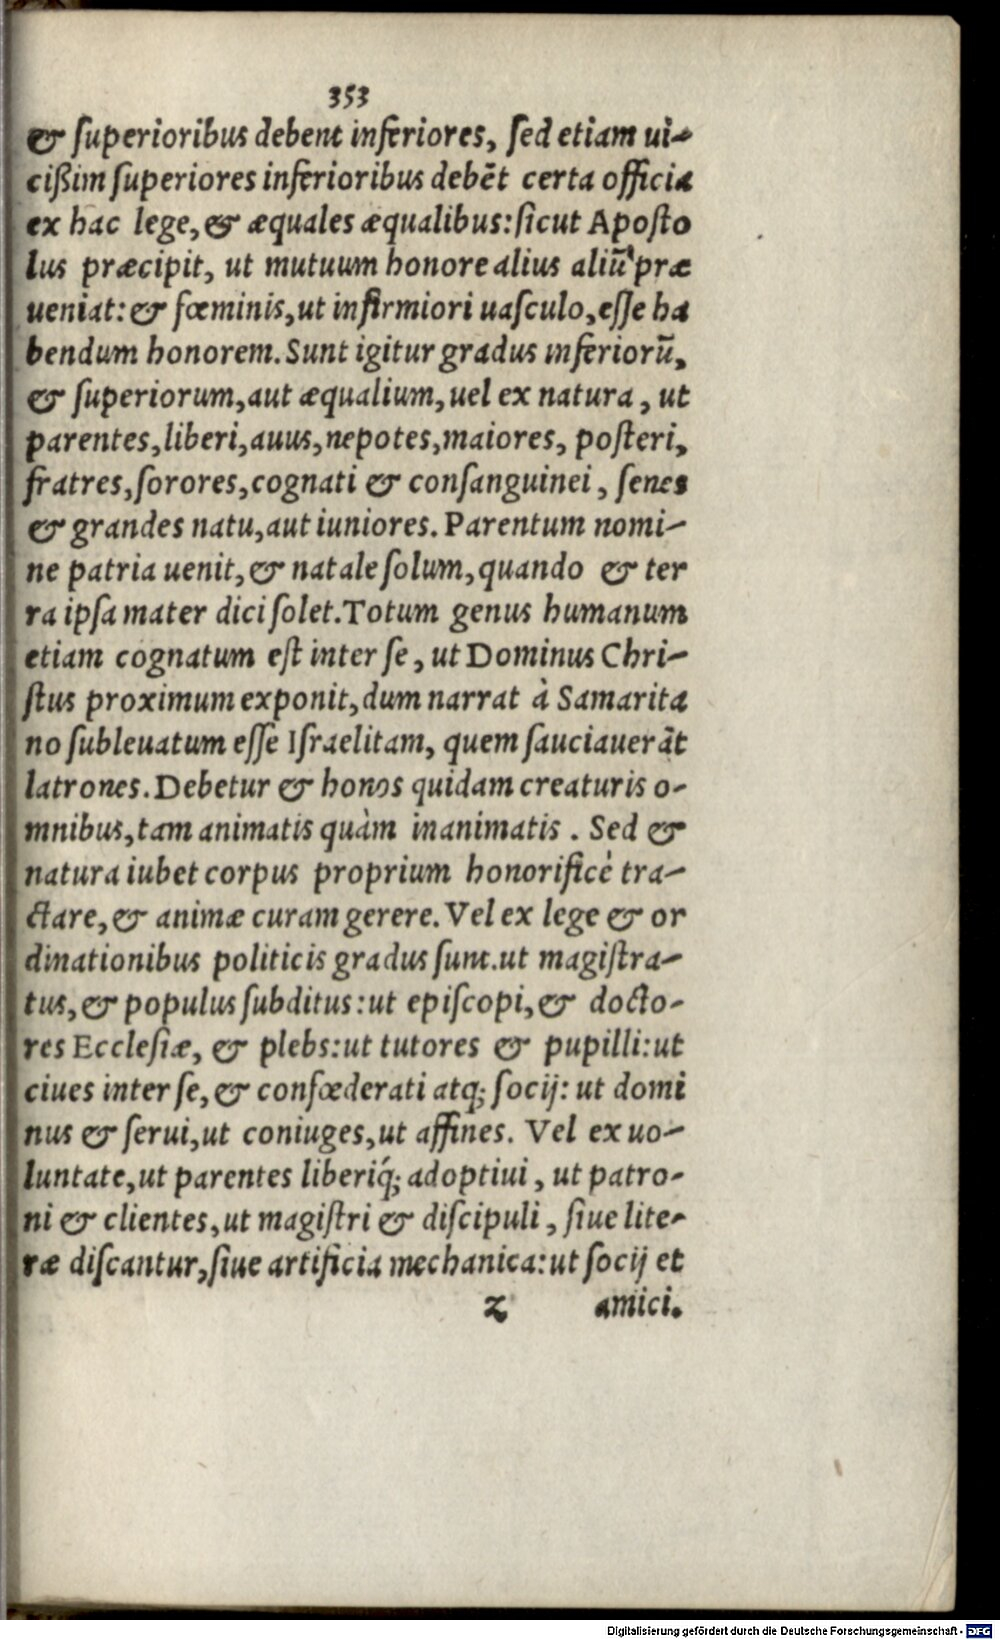 353
& superioribus debent inferiores, sed etiam ui-
cißim superiores inferioribus debẽt certa officia
ex hac lege, & æquales æqualibus: sicut Aposto
lus præcipit, ut mutuum honore alius aliũ præ
ueniat: & fœminis, ut infirmiori uasculo, esse ha
bendum honorem. Sunt igitur gradus inferiorũ,
& superiorum, aut æqualium, uel ex natura, ut
parentes, liberi, auus, nepotes, maiores, posteri,
fratres, sorores, cognati & consanguinei, senes
& grandes natu, aut iuniores. Parentum nomi-
ne patria uenit, & natale solum, quando & ter
ra ipsa mater dici solet. Totum genus humanum
etiam cognatum est inter se, ut Dominus Chri-
stus proximum exponit, dum narrat à Samarita
no subleuatum esse Israelitam, quem sauciauerãt
latrones. Debetur & honos quidam creaturis o-
mnibus, tam animatis quàm inanimatis. Sed &
natura iubet corpus proprium honorificè tra-
ctare, & animæ curam gerere. Vel ex lege & or
dinationibus politicis gradus sunt. ut magistra-
tus, & populus subditus: ut episcopi, & docto-
res Ecclesiæ, & plebs: ut tutores & pupilli: ut
ciues inter se, & confœderati atq; socij: ut domi
nus & serui, ut coniuges, ut affines. Vel ex uo-
luntate, ut parentes liberiq́; adoptiui, ut patro-
ni & clientes, ut magistri & discipuli, siue lite-
ræ discantur, siue artificia mechanica: ut socij et
z amici.
Digitalisierung gefördert durch die Deutsche Forschungsgemeinschaft - DFG